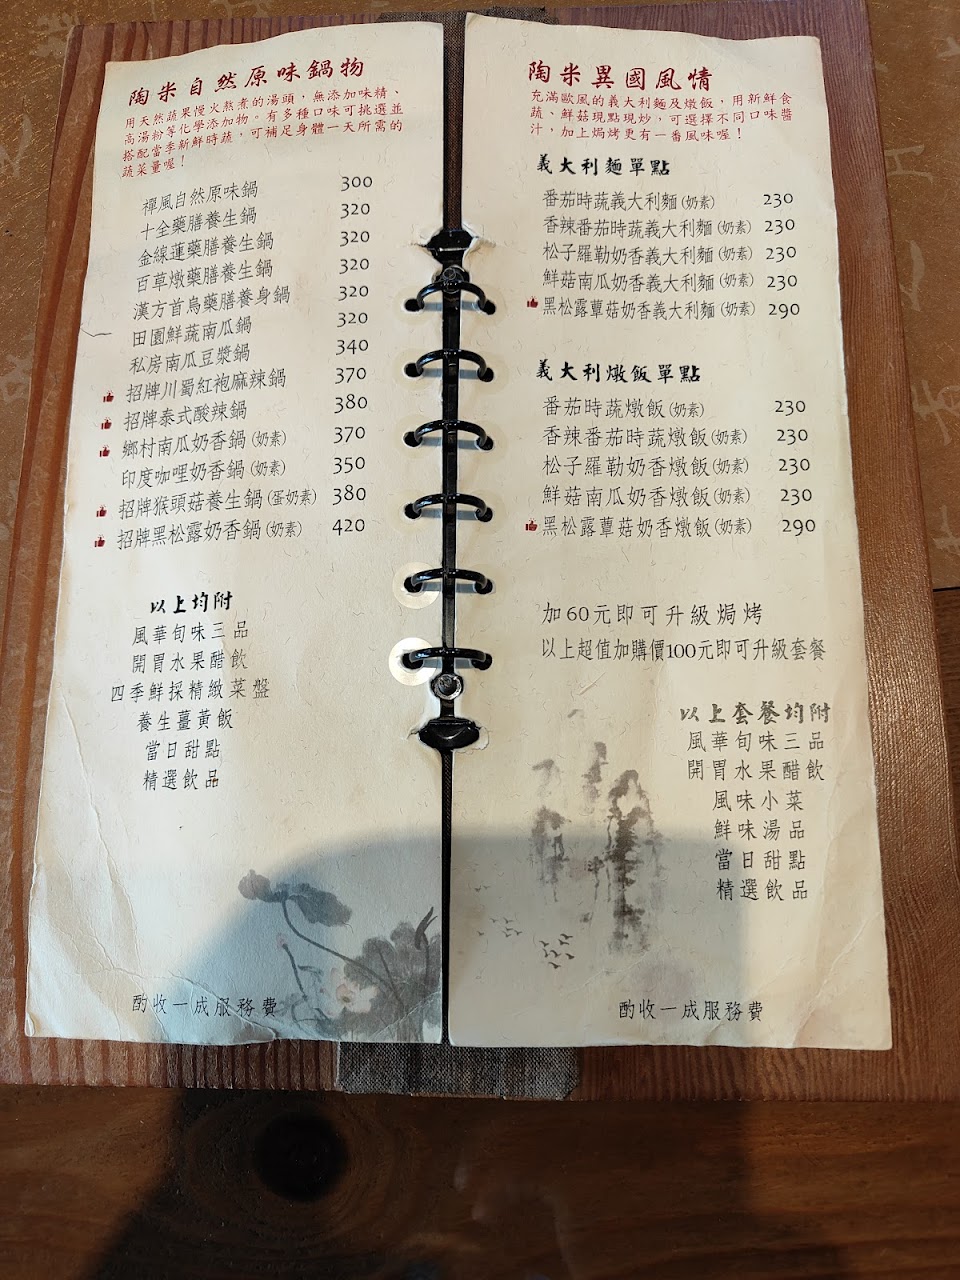 陶米自然原味鍋物
用天然蔬果慢火熬煮的湯頭，無添加味精、
高湯粉等化學添加物。有多種口味可挑選並
搭配當季新鮮時蔬，可補足身體一天所需的
蔬菜量喔！
禪風自然原味鍋 300
十全藥膳養生鍋 320
金線蓮藥膳養生鍋 320
百草燉藥膳養生鍋 320
漢方首烏藥膳養身鍋 320
田園鮮蔬南瓜鍋 320
私房南瓜豆漿鍋 340
招牌川蜀紅袍麻辣鍋 370
招牌泰式酸辣鍋 380
鄉村南瓜奶香鍋(奶素) 370
印度咖哩奶香鍋(奶素) 350
招牌猴頭菇養生鍋(蛋奶素) 380
招牌黑松露奶香鍋(奶素) 420
以上均附
風華旬味三品
開胃水果醋飲
四季鮮採精緻菜盤
養生薑黃飯
當日甜點
精選飲品
酌收一成服務費
陶米異國風情
充滿歐風的義大利麵及燉飯，用新鮮食
蔬、鮮菇現點現炒，可選擇不同口味醬
汁，加上焗烤更有一番風味喔！
義大利麵單點
番茄時蔬義大利麵(奶素) 230
香辣番茄時蔬義大利麵(奶素) 230
松子羅勒奶香義大利麵(奶素) 230
鮮菇南瓜奶香義大利麵(奶素) 230
黑松露蕈菇奶香義大利麵(奶素) 290
義大利燉飯單點
番茄時蔬燉飯(奶素) 230
香辣番茄時蔬燉飯(奶素) 230
松子羅勒奶香燉飯(奶素) 230
鮮菇南瓜奶香燉飯(奶素) 230
黑松露蕈菇奶香燉飯(奶素) 290
加60元即可升級焗烤
以上超值加購價100元即可升級套餐
以上套餐均附
風華旬味三品
開胃水果醋飲
風味小菜
鮮味湯品
當日甜點
精選飲品
酌收一成服務費